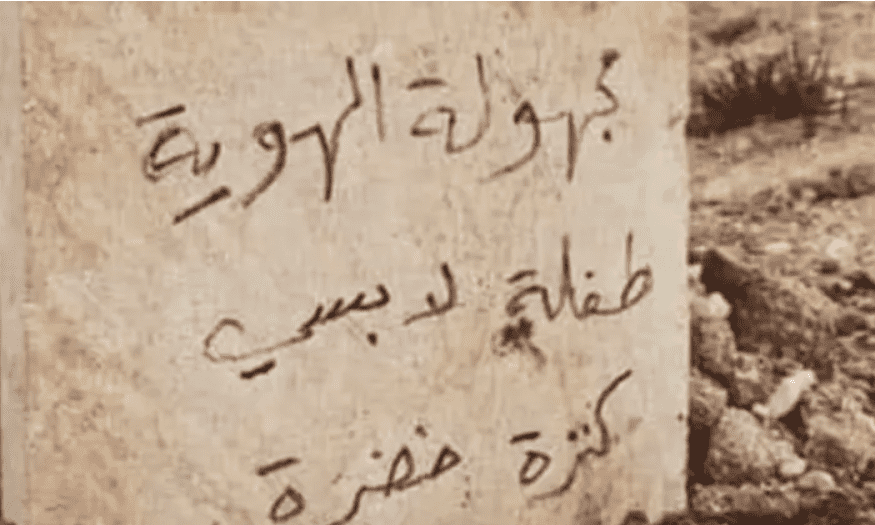 مجهولة الهوية
طفلة لابسي
كنزة خضرة